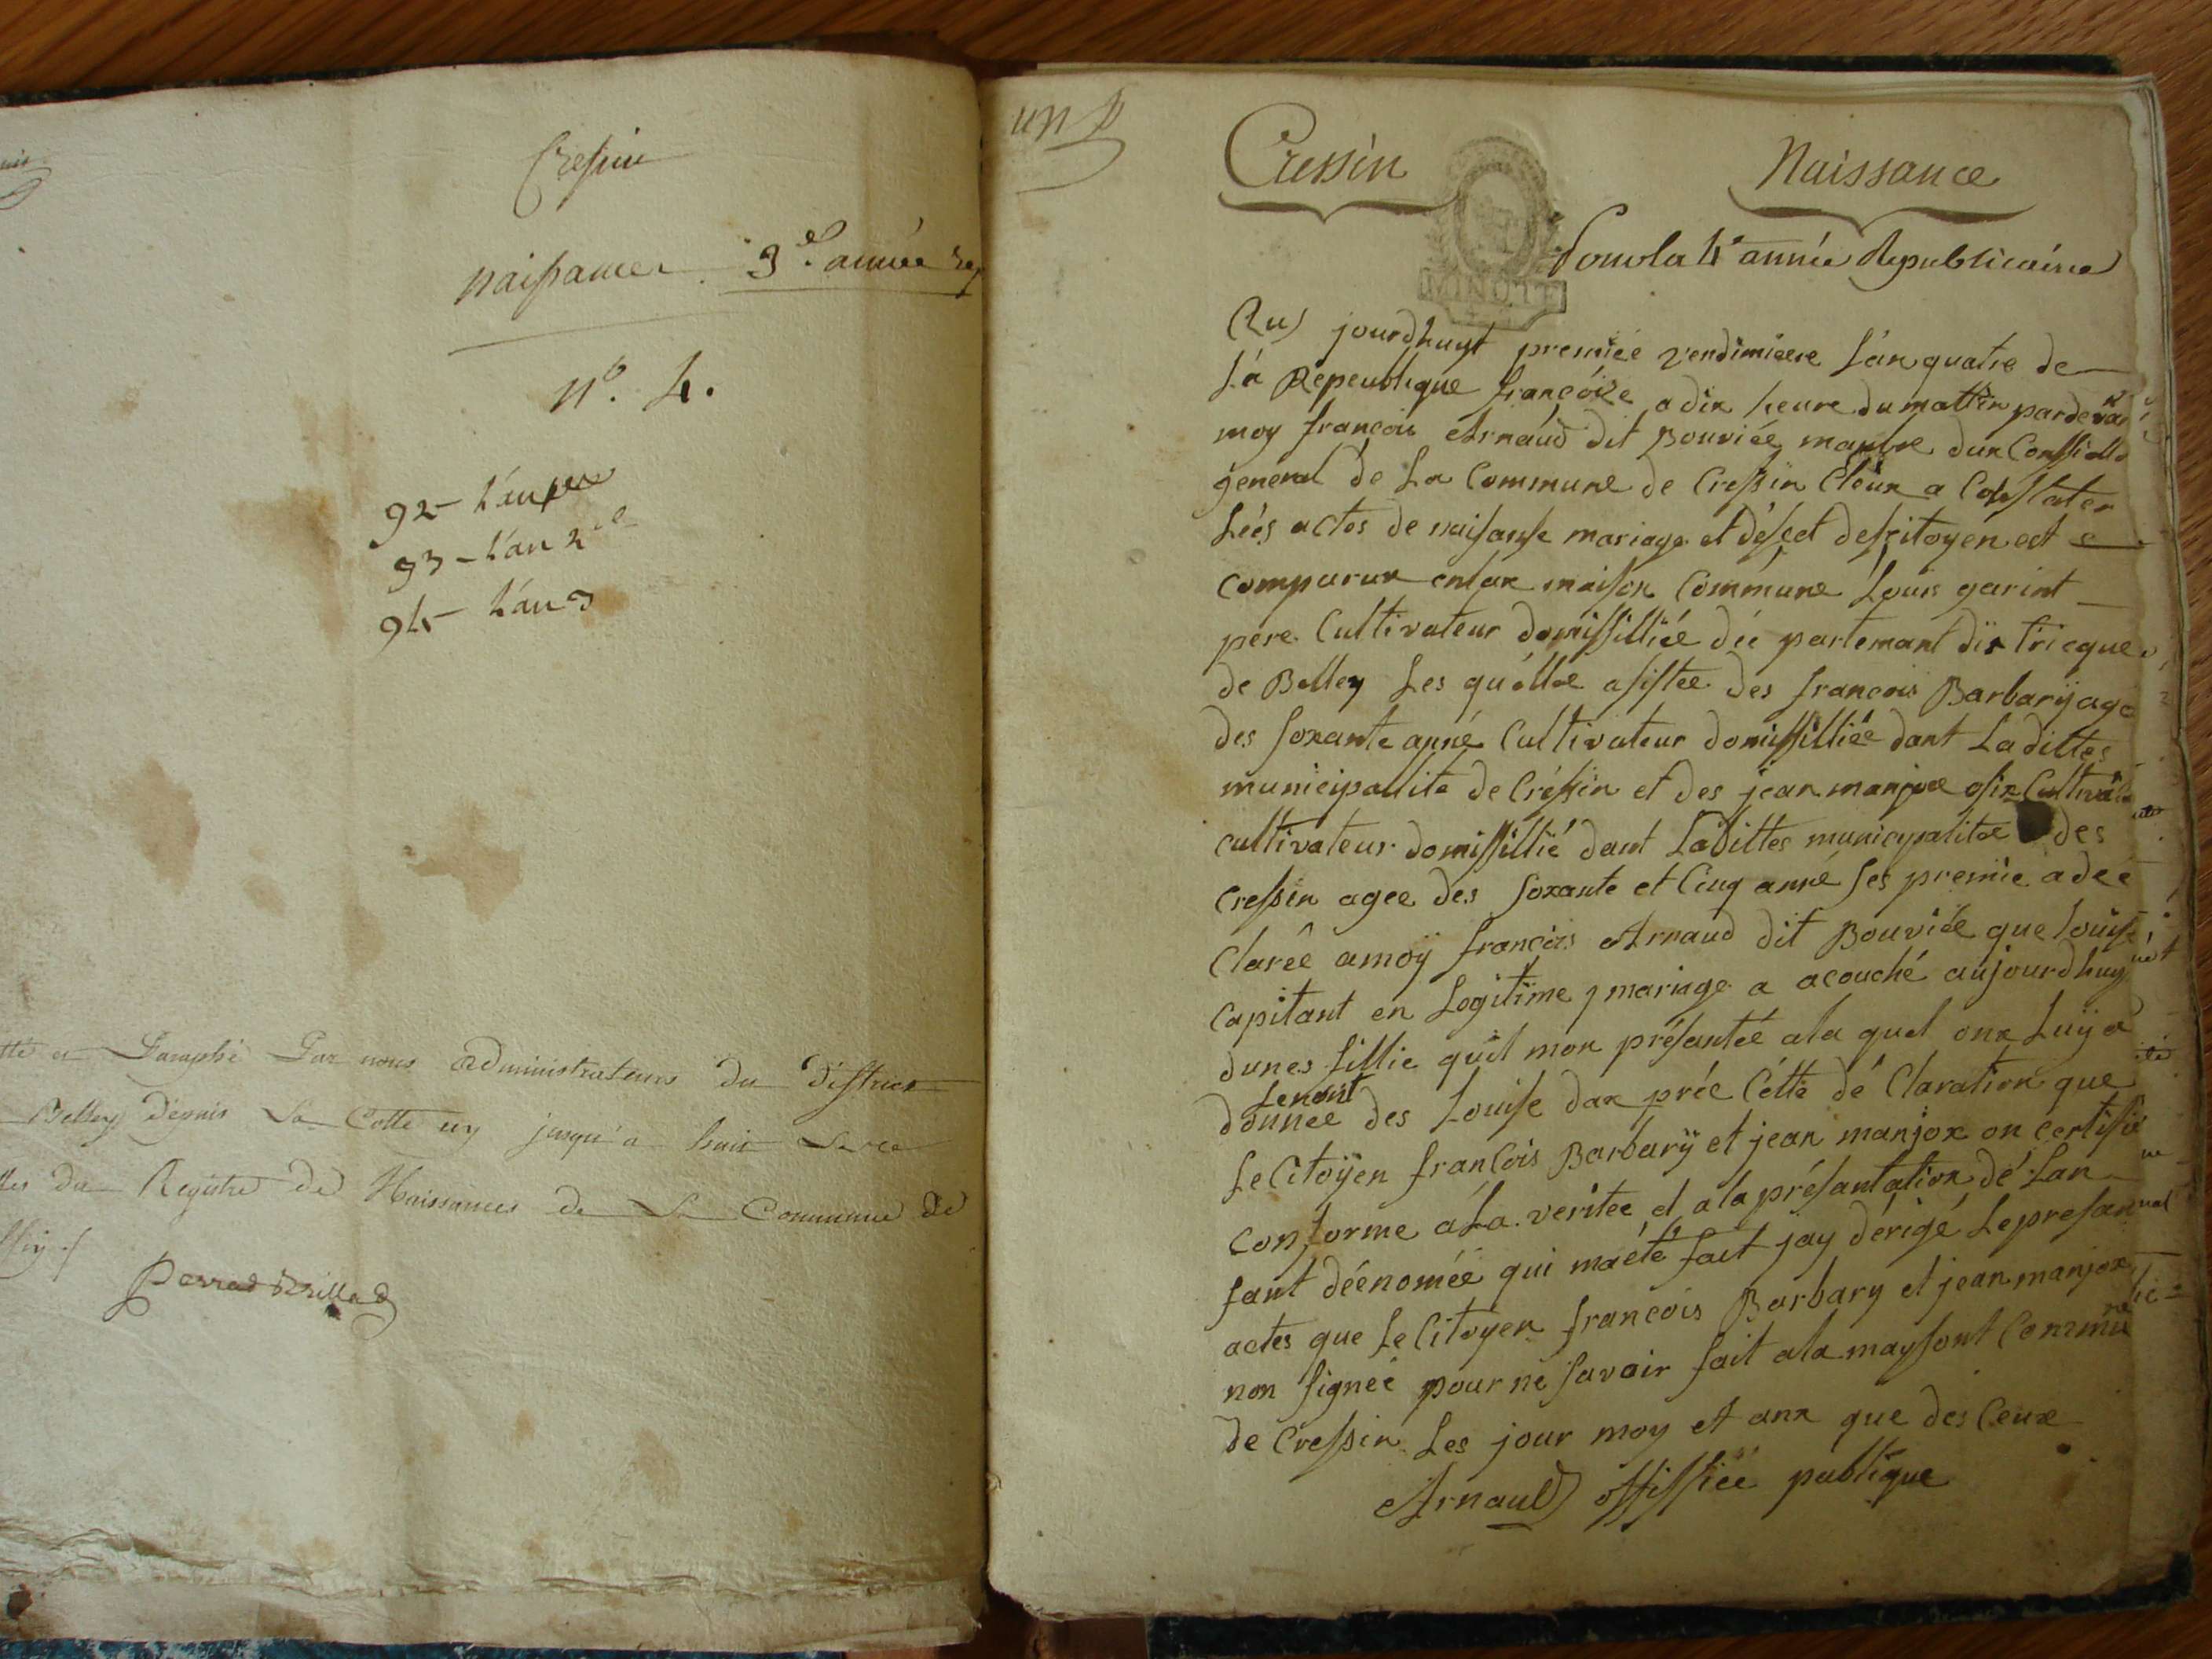 Cressin
Naissances 3e. année rep
n°. 4.
92 - L'an per
93 - L'an 2e
94 - L'an 3
Paraphé Par nous administrateurs du district
Belley depuis La Cotte un jusqu'a huit
du Registre de Naissances de La Commune de
un
Cressin Naissance
MINUTE
Pour la 4e année Republicaine
Au jourdhuyt premiée vendimiere Lán quatre de
Lá Republique françóise a dix heure du mattin pardevan
moy francois Arnáud dit Bouvíée manbre dux Conssielle
géneral de La Commune de Cressin Eléux a Constater
Léés actes de naisansse mariage et déset des sitoyen est
comparux enlax maison Commune Louis garint
pere Cultivateur domissilliée dée partemant districque
de Belley Les quélle asistee des francois Barbarÿ age
des soxante anné Cultivateur domissilliée dant Ladittes
municipallite de Créssin et des jean manjox osix Cultivate
cultivateur domissillié dant Ladittes municypalitee des
Cressin agee des soxante et Cinq anné ses premie a dée
Clarée amoÿ francois Arnaud dit Bouviée que Louise
Capitant en Legitime mariage a acouché aujourdhuy
dunes fillie quil mon présantée ala quel onx Luÿ a
Lenont
donnee des Louise dax prée Cétte dé Claration que
Le Citoÿen franCois Barbarÿ et jean manjox on certifie
Conforme áLa veritée et ala présantation dé Lan
fant déenomée qui maété fait jay dérigé Le presan
actes que Le Citoyen francois Barbary et jean manjox
non signeé pour ne savoir fait ala maysont Commu
ne
de Cressin Les jour moy et anx que des Ceux
Arnauld offissiée publique